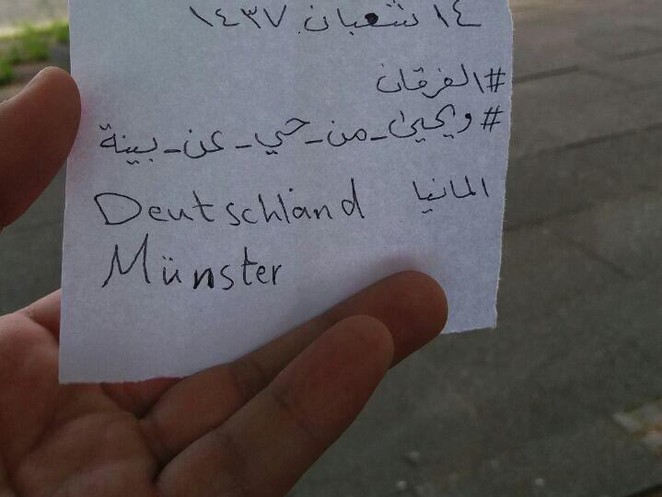 ١٤ شعبان ١٤٣٧
#الفرقان
#ويحيى_من_حي_عن_بينة
Deutschland المانيا
Münster